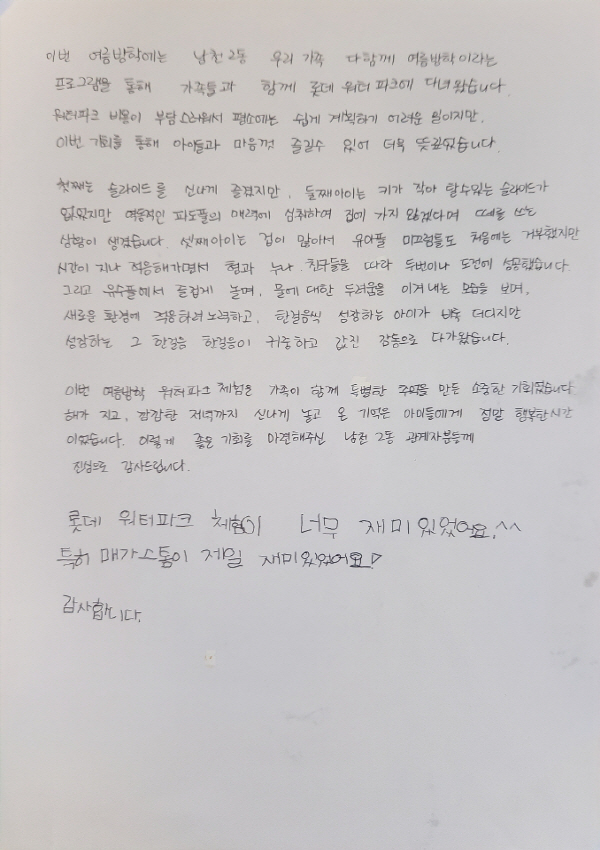 이번 여름방학에는 남천2동 우리 가족 다함께 여름방학이라는
프로그램을 통해 가족들과 함께 롯데 워터파크에 다녀왔습니다.
워터파크 비용이 부담스러워서 평소에는 쉽게 계획하기 어려운 일이지만,
이번 기회를 통해 아이들과 마음껏 즐길수 있어 더욱 뜻깊었습니다.
첫째는 슬라이드를 신나게 즐겼지만, 둘째아이는 키가 작아 탈수있는 슬라이드가
없었지만 역동적인 파도풀의 매력에 심취하여 집에 가지 않겠다며 떼를 쓰는
상황이 생겼습니다. 셋째아이는 겁이 많아서 유아풀 미끄럼틀도 처음에는 거부했지만
시간이 지나 적응해가면서 형과 누나, 친구들을 따라 두번이나 도전에 성공했습니다.
그리고 유수풀에서 즐겁게 놀며, 물에 대한 두려움을 이겨내는 모습을 보며,
새로운 환경에 적응하려 노력하고, 한걸음씩 성장하는 아이가 비록 더디지만
성장하는 그 한걸음 한걸음이 귀중하고 값진 감동으로 다가왔습니다.
이번 여름방학 워터파크 체험은 가족이 함께 특별한 추억을 만든 소중한 기회였습니다
해가 지고, 캄캄한 저녁까지 신나게 놀고 온 기억은 아이들에게 정말 행복한 시간
이었습니다. 이렇게 좋은 기회를 마련해주신 남천 2동 관계자분들께
진심으로 감사드립니다.
롯데 워터파크 체험이 너무 재미있었어요.^^
특히 매가스톰이 제일 재미있었어요♡
감사합니다.